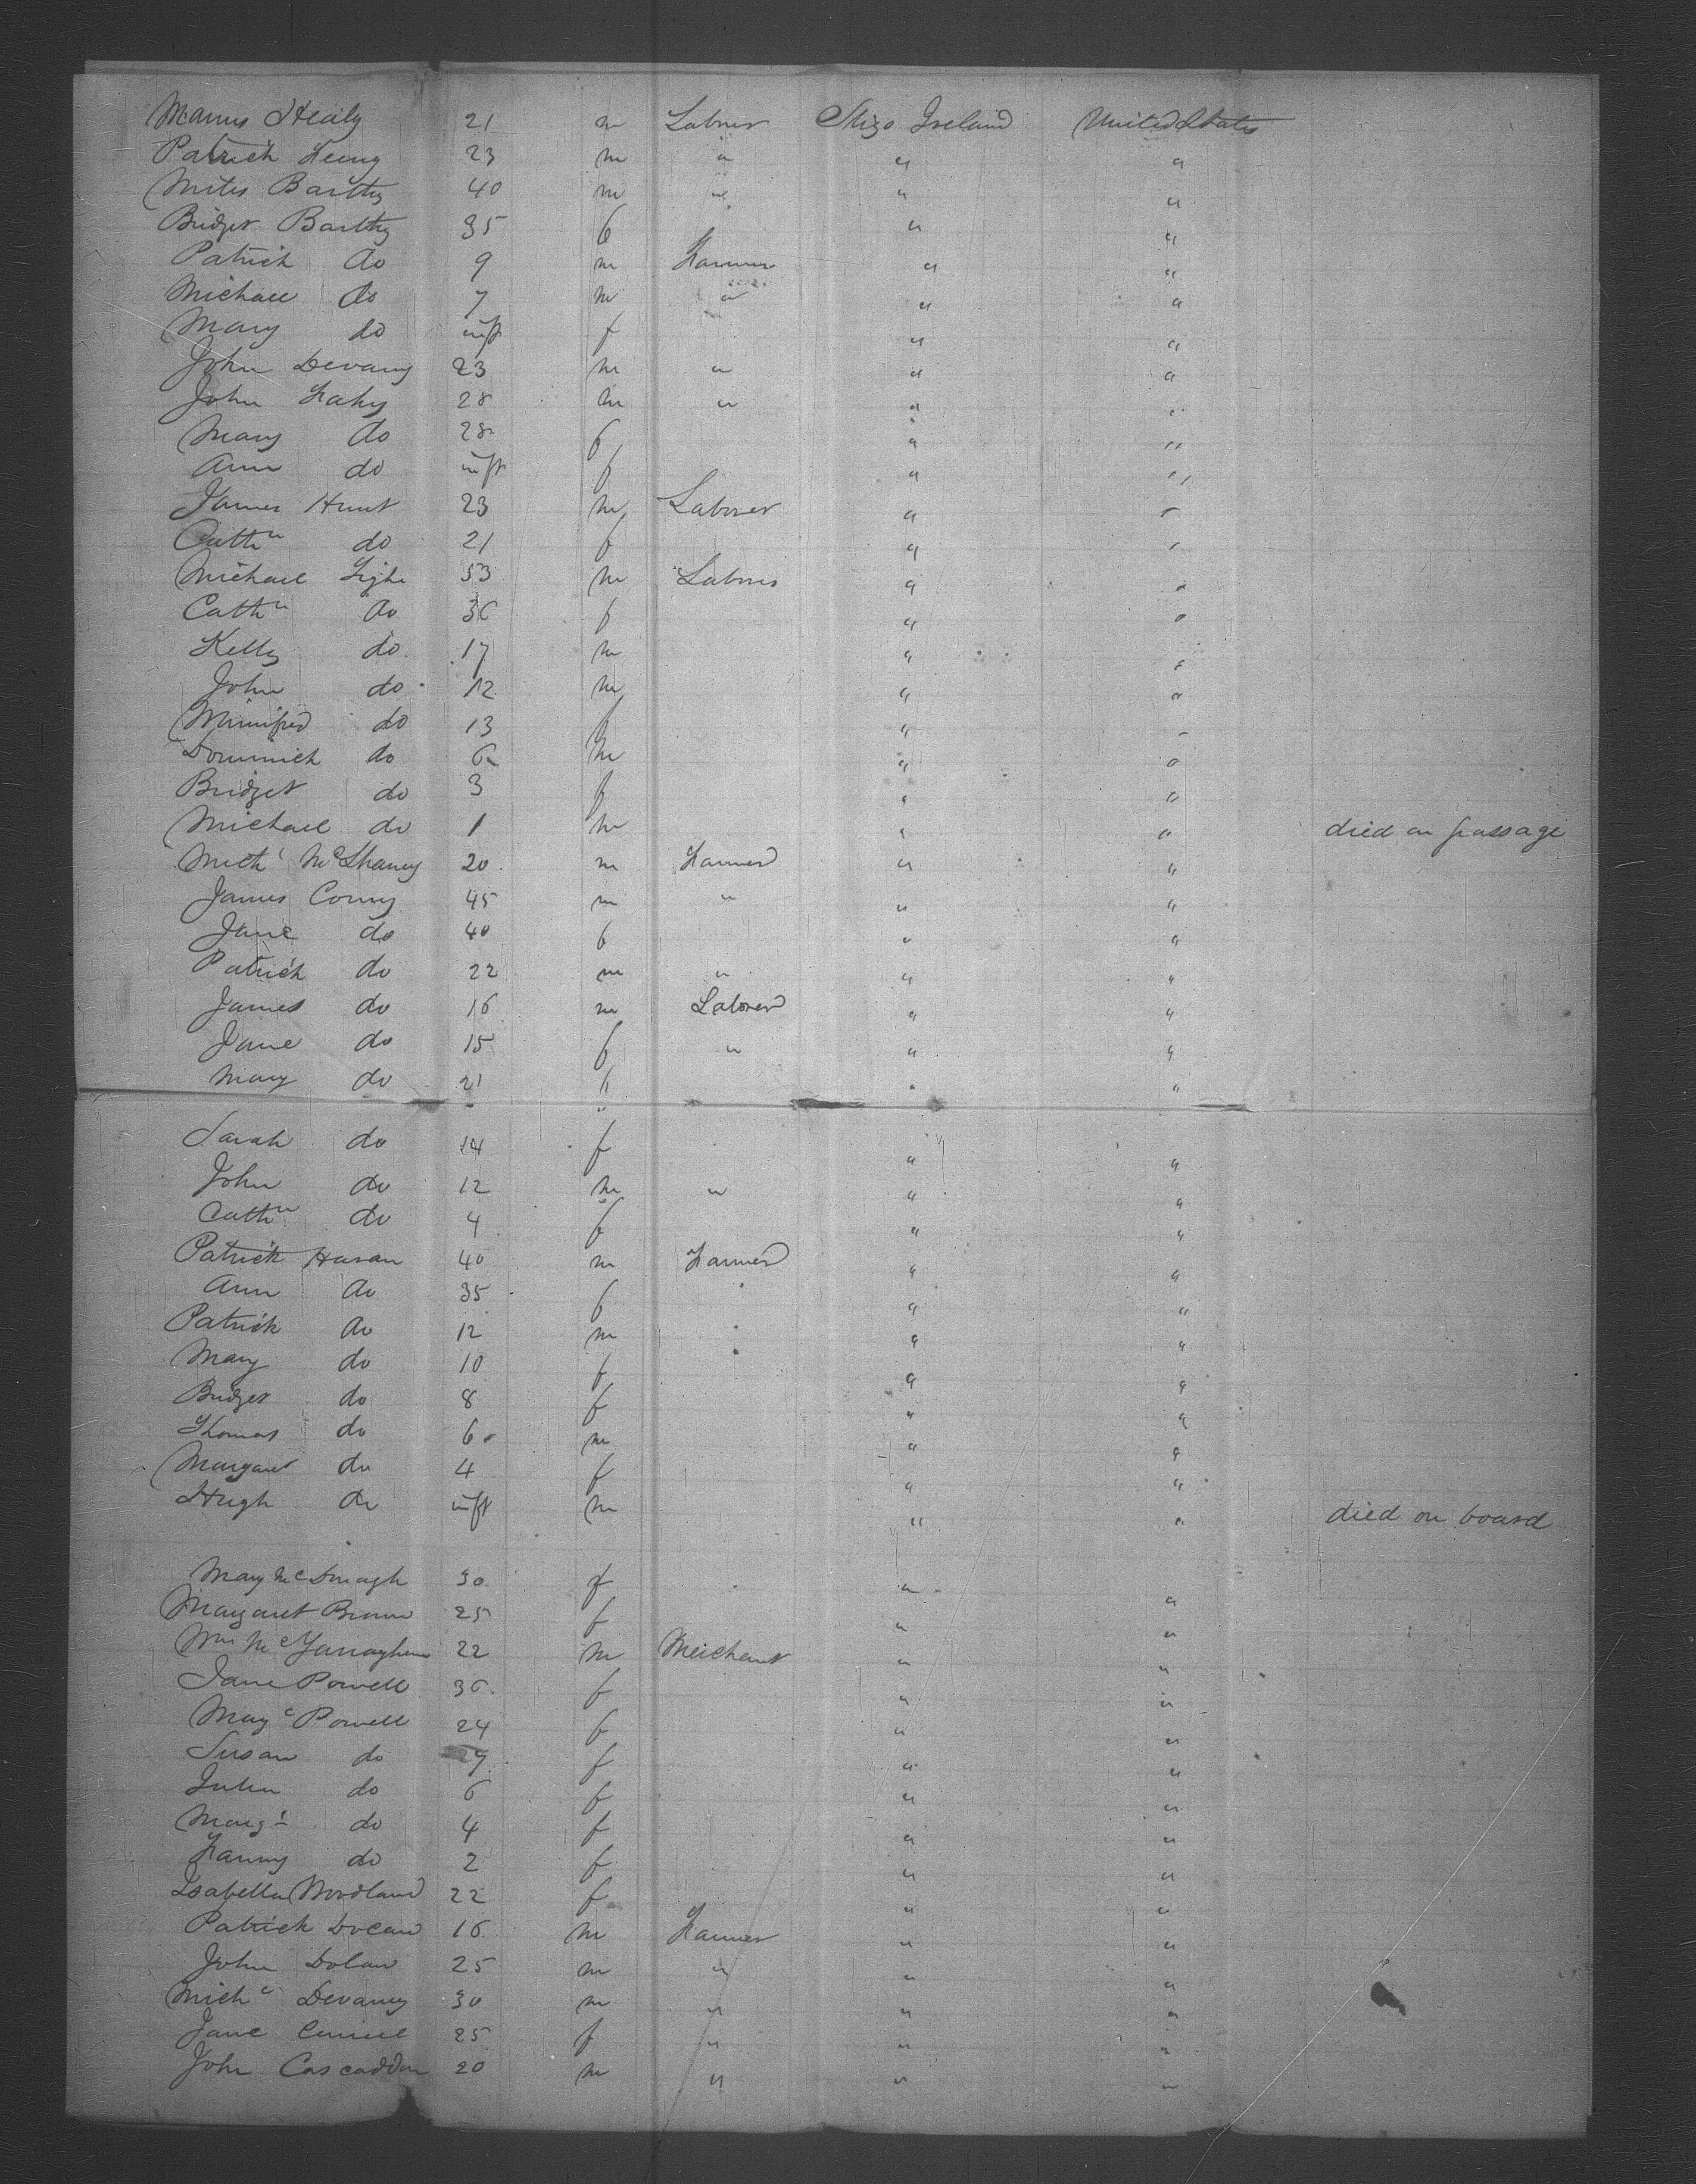 Manus Healy 21 m Laborer Sligo Ireland United States
Patrick Leeng 23 m " " "
Miles Bartley 40 m " " "
Bridget Bartley 35 f " "
Patrick do 9 m Farmer " "
Michael do 7 m " " "
Mary do inft f " "
John Devany 23 m " " "
John Fahy 28 m " " "
Mary do 28 f " "
Ann do inft f " "
James Hunt 23 m Laborer " "
Cathn do 21 f " "
Michael Tighe 53 m Laborer " "
Cathn do 36 f " "
Kelly do 17 m " "
John do 12 m " "
Winnifred do 13 f " "
Dominick do 6 m " "
Bridget do 3 f " "
Michael do 1 m " " died on passage
Michl McSharry 20 m Farmer " "
James Conny 45 m " " "
Jane do 40 f " "
Patrick do 22 m " " "
James do 16 m Laborer " "
Jane do 15 f " " "
Mary do 21 f " "
Sarah do 14 f " "
John do 12 m " " "
Cathn do 4 f " "
Patrick Haran 40 m Farmer " "
Ann do 35 f " "
Patrick do 12 m " "
Mary do 10 f " "
Bridget do 8 f " "
Thomas do 6 m " "
Margaret do 4 f " "
Hugh do inft m " " died on board
Mary McDonagh 30 f " "
Margaret Brown 25 f " "
Wm Mc 22 m Merchant " "
Jane Powell 36 f " "
Powell 24 f " "
Susan do f " "
Julia do 6 f " "
Margt do 4 f " "
Fanny do 2 f " "
Isabella Woodland 22 f " "
Patrick 16 m Farmer " "
John Dolan 25 m " " "
Michl Devaney 30 m " " "
Jane 25 f " " "
John Cascaddan 20 m " " "